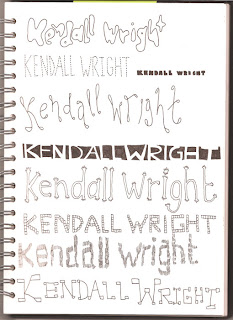 Kendall Wright
KENDALL WRIGHT KENDALL WRIGHT
Kendall Wright
KENDALL WRIGHT
Kendall Wright
KENDALL WRIGHT
Kendall Wright
KENDALL WRIGHT